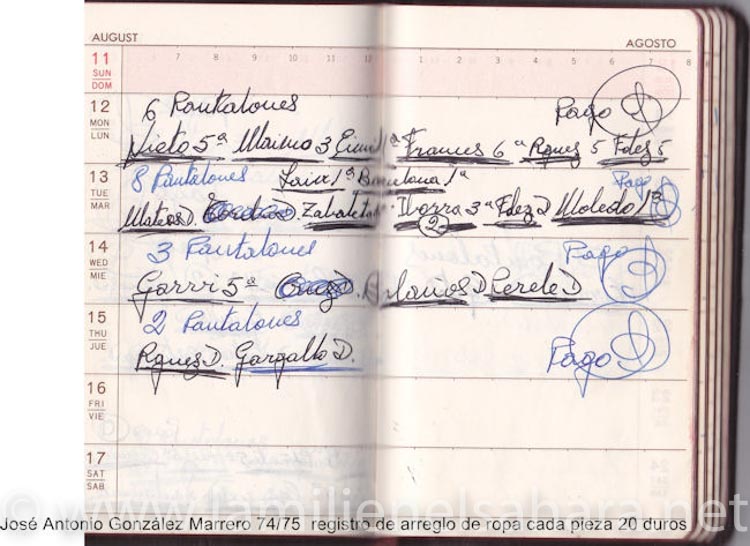 AUGUST AGOSTO
6 7 8 9 10 11 12 1 2 3 4 5 6 7 8
11 SUN DOM
12 MON LUN
6 Pantalones Pago
Nieto 5ª Maimo 3 1ª Frances 6ª Rguez 5 Fdez 5
13 TUE MAR
8 Pantalones 1ª Barcelona 1ª Pago
Mateos D. Zabaleta Iborra 3ª Fdez D Moledo 1ª
2
14 WED MIE
3 Pantalones Pago
Garri 5ª D. Bolanos D Perete D
15 THU JUE
2 Pantalones
Rguez D. Gargallo D. Pago
16 FRI VIE
17 SAT SAB
© www.lamilienelsahara.net
José Antonio González Marrero 74/75 registro de arreglo de ropa cada pieza 20 duros